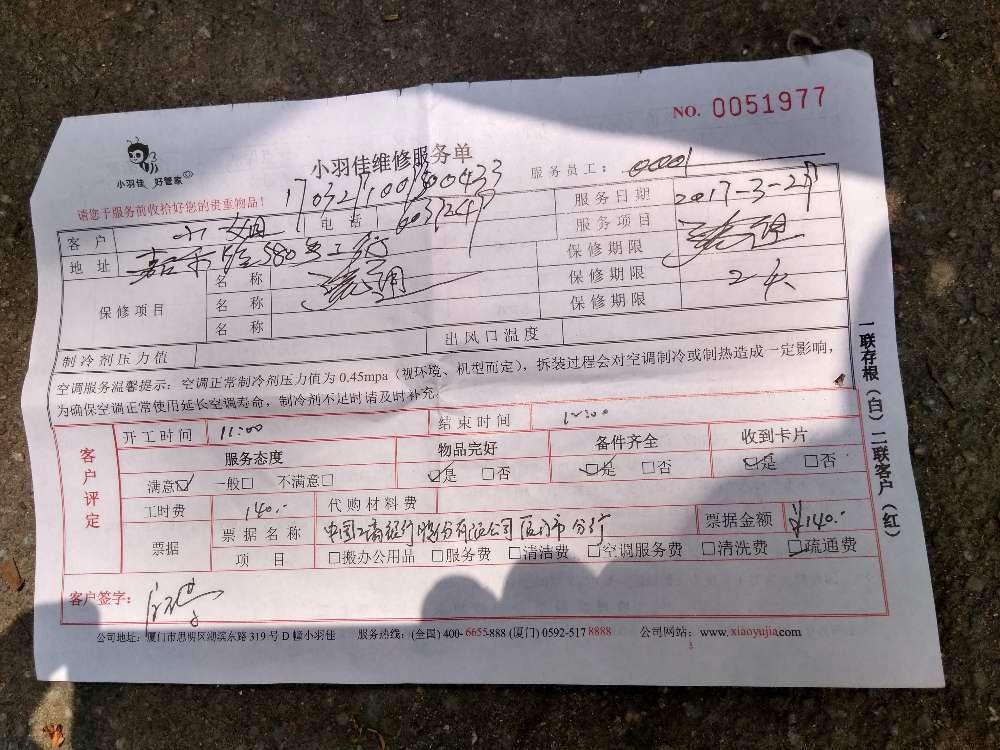 NO. 0051977
小羽佳 好管家
小羽佳维修服务单
服务员工：0001
请您于服务前收拾好您的贵重物品！
170321100500433
客户 小姐 电话 6037247 服务日期 2017-3-27
地址 580号工行 服务项目 疏通
保修项目 名称 疏通 保修期限
名称 保修期限 2天
名称 保修期限
制冷剂压力值 出风口温度
空调服务温馨提示：空调正常制冷剂压力值为0.45mpa（视环境、机型而定），拆装过程会对空调制冷或制热造成一定影响，
为确保空调正常使用延长空调寿命，制冷剂不足时请及时补充。
客户评定
开工时间 11:00 结束时间 12:00
服务态度 物品完好 备件齐全 收到卡片
满意☑ 一般□ 不满意□ ☑是 □否 ☑是 □否 ☑是 □否
工时费 140.- 代购材料费
票据 票据名称 中国工商银行股份有限公司厦门市分行 票据金额 ¥140.-
项目 □搬办公用品 □服务费 □清洁费 □空调服务费 □清洗费 ☑疏通费
客户签字：
公司地址：厦门市思明区湖滨东路319号D幢小羽佳 服务热线：(全国) 400-6655-888 (厦门) 0592-517 8888 公司网站：www.xiaoyujia.com
3
一联存根（白）二联客户（红）